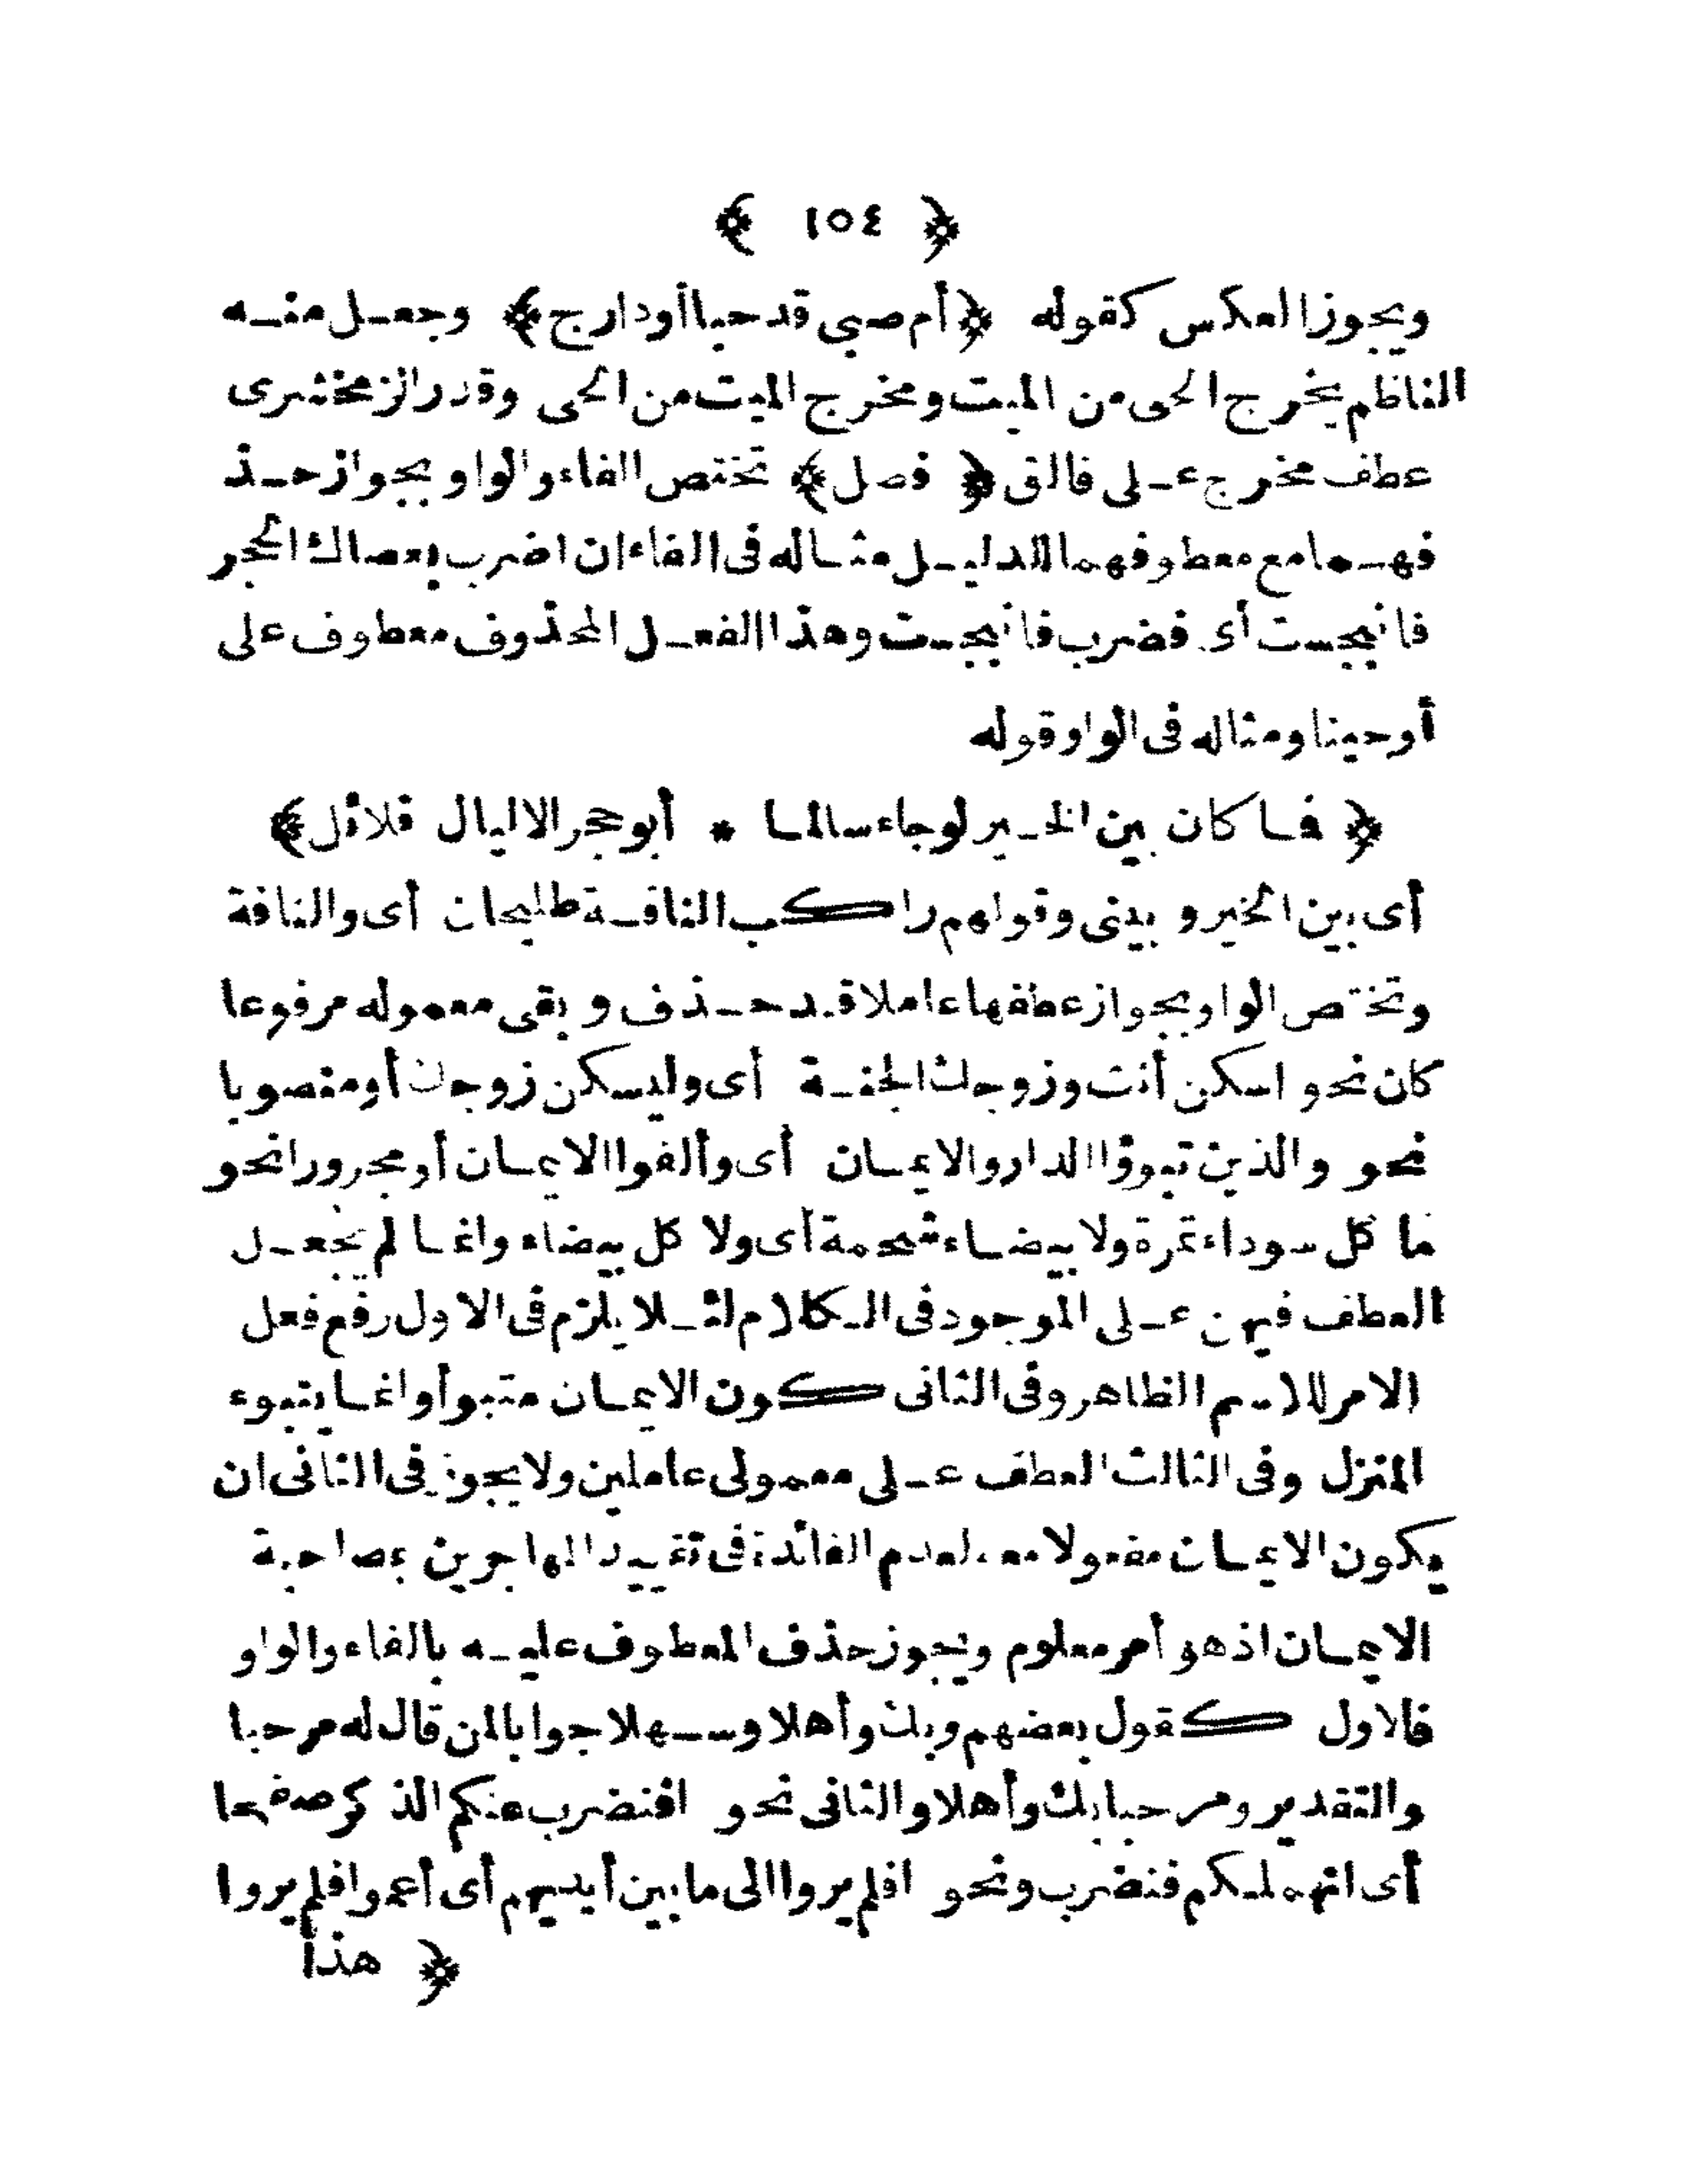 ﴿ ١٥٤ ﴾
ويجوز العكس كقوله ﴿أم صبي قد حبا أو دارج﴾ وجعل منه
الناظم يخرج الحى من الميت ومخرج الميت من الحى وقدر الزمخشرى
عطف مخرج على فالق ﴿ فصل﴾ تختص الفاء والواو بجواز حذ
فهما مع معطوفهما للدليل مثاله فى الفاء ان اضرب بعصاك الحجر
فانبجست أى فضرب فانبجست وهذا الفعل المحذوف معطوف على
أوحينا ومثاله فى الواو قوله
﴿ فما كان بين الخير لو جاء سالما * أبو حجر الا ليال قلائل﴾
أى بين الخير و بينى وقولهم راكب الناقة طليحان أى والناقة
وتختص الواو بجواز عطفها عاملا قد حذف و بقى معموله مرفوعا
كان نحو اسكن أنت وزوجك الجنة أى وليسكن زوجك أو منصوبا
نحو والذين تبوؤا الدار والايمان أى وألفوا الايمان أو مجرورا نحو
ما كل سوداء تمرة ولا بيضاء شحمة أى ولا كل بيضاء وانما لم يجعل
العطف فيهن على الموجود فى الكلام لئلا يلزم فى الاول رفع فعل
الامر للاسم الظاهر وفى الثانى كون الايمان متبوأ وانما يتبوء
المنزل وفى الثالث العطف على معمولى عاملين ولا يجوز فى الثانى ان
يكون الايمان مفعولا معه لعدم الفائدة فى تقييد المهاجرين بمصاحبة
الايمان اذ هو أمر معلوم ويجوز حذف المعطوف عليه بالفاء والواو
فالاول كقول بعضهم وبك وأهلا وسهلا جوابا لمن قال له مرحبا
والتقدير ومرحبا بك وأهلا والثانى نحو افنضرب عنكم الذكر صفحا
أى انهملكم فنضرب ونحو افلم يروا الى ما بين أيديهم أى أعموا فلم يروا
﴿ هذا